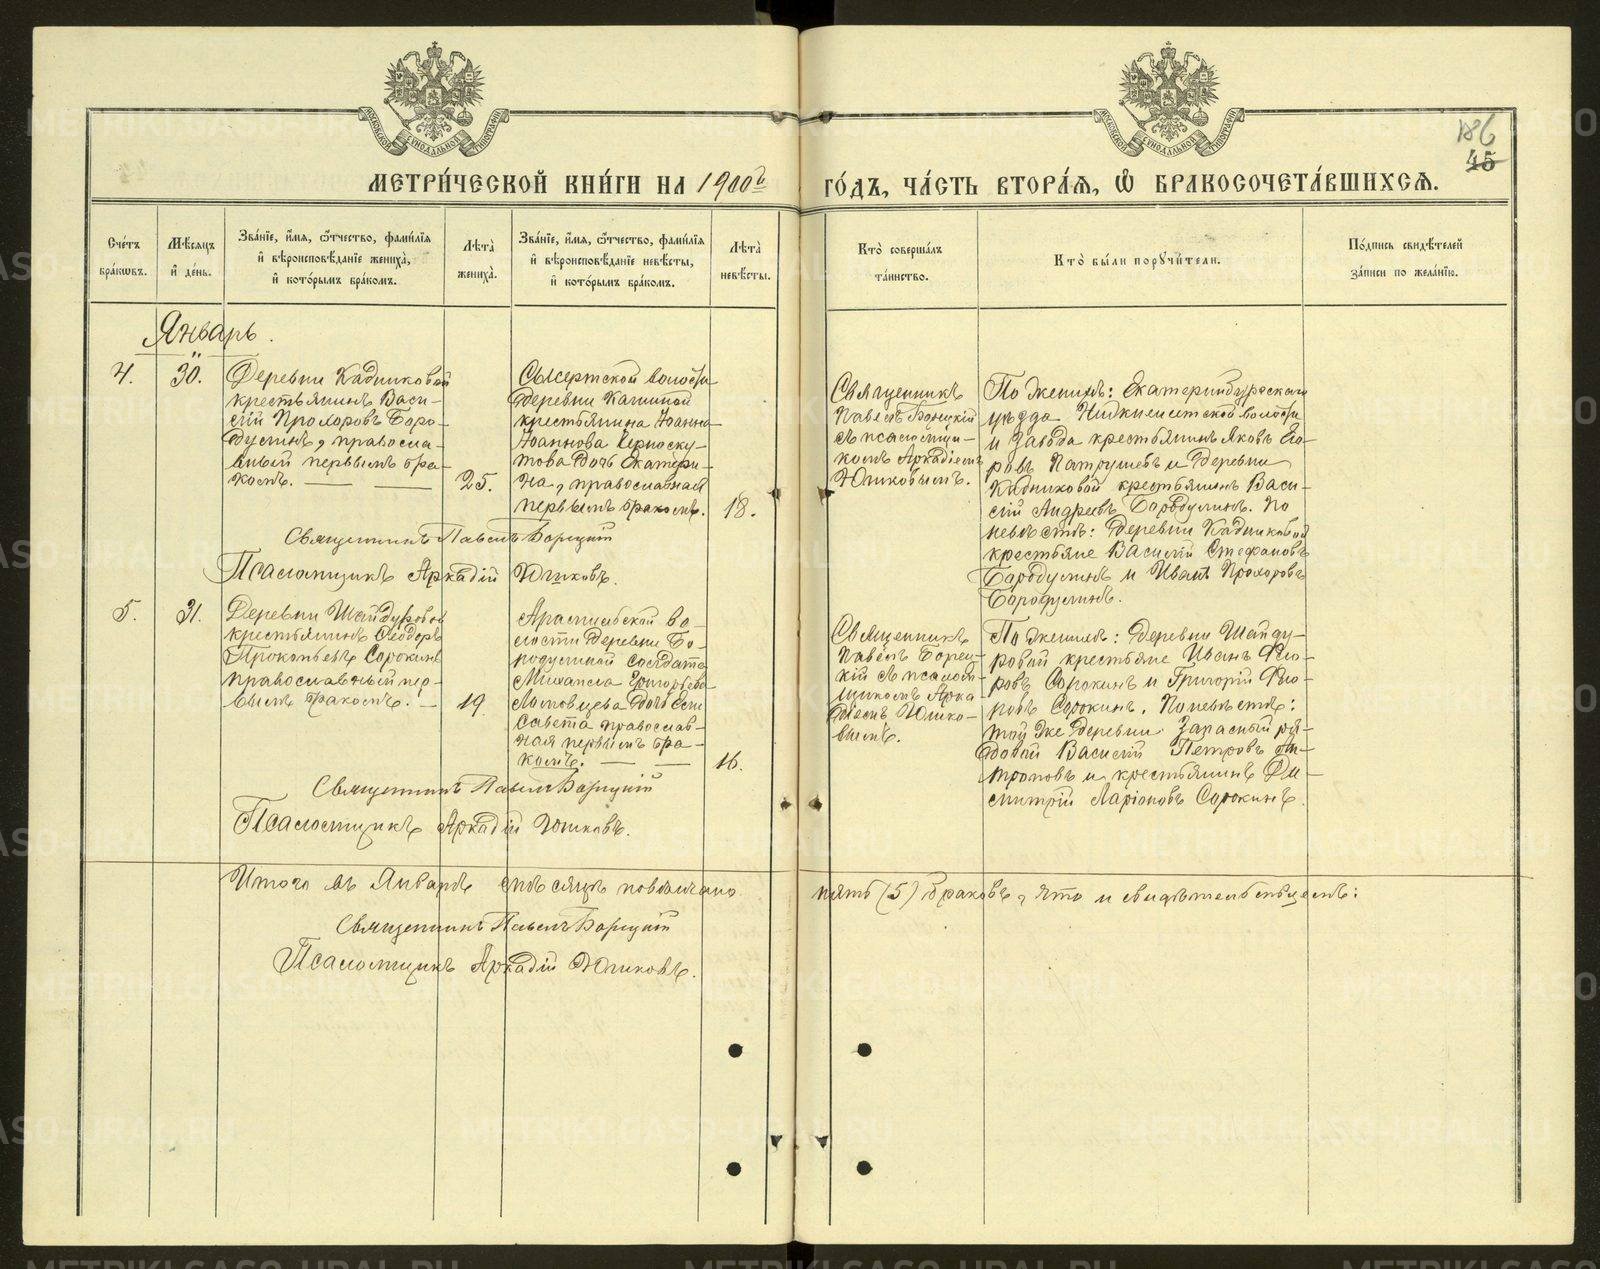 МЕТРИ́ЧЕСКОЙ КНИ́ГИ НА 1900й ГО́ДЪ, ЧА́СТЬ ВТОРА́Ѧ, Ѽ БРАКОСОЧЕТА́ВШИХСѦ.
186
45
Сче́тъ бра́кѡвъ.
Мѣ́сѧцъ и҆ де́нь.
Зва́нїе, и҆́мѧ, ѻ҆́тчество, фамѝлїѧ и҆ вѣроисповѣ́данїе жениха̀, и҆ кото́рымъ бра́комъ.
Лѣ́та жениха̀.
Зва́нїе, и҆́мѧ, ѻ҆́тчество, фамѝлїѧ и҆ вѣроисповѣ́данїе невѣ́сты, и҆ кото́рымъ бра́комъ.
Лѣ́та невѣ́сты.
Кто̀ соверша́лъ та́инство.
Кто̀ бы́ли порꙋчи́тели.
По́дпись свидѣ́телей за́писи по жела́нїю.
Январь.
4.
30.
Деревни Кадниковой
крестьянинъ Васи-
лій Прохоровъ Боро-
дулинъ, правосла-
вный первымъ бра-
комъ.
25.
Сысертской волости
деревни Кашиной
крестьянина Іоанна
Іоаннова Черноску-
това дочь Екатери-
на, православная
первымъ бракомъ.
18.
Священникъ
Павелъ Борецкій
съ псаломщи-
комъ Аркадіемъ
Юшковымъ.
По женихѣ: Екатеринбургскаго
уѣзда Нижнеисетской волости
и завода крестьянинъ Яковъ Его-
ровъ Патрушевъ и деревни
Кадниковой крестьянинъ Васи-
лій Андреевъ Бородулинъ. По
невѣстѣ: деревни Кадниковой
крестьяне Василій Стефановъ
Бородулинъ и Иванъ Прохоровъ
Бородулинъ.
Священникъ Павелъ Борецкій
Псаломщикъ Аркадій Юшковъ.
5.
31.
Деревни Шайдуровой
крестьянинъ Ѳеодоръ
Прокопьевъ Сорокинъ
православный пер-
вымъ бракомъ.
19
Арамильской во-
лости деревни Бо-
родулиной солдата
Михаила Григорьева
дочь Ели-
савета православ-
ная первымъ бра-
комъ.
16.
Священникъ
Павелъ Борец-
кій съ псалом-
щикомъ Арка
діемъ Юшко-
вымъ.
По женихѣ: деревни Шайду-
ровой крестьяне Иванъ Ѳео-
ровъ Сорокинъ и Григорій Ѳео-
ровъ Сорокинъ. По невѣстѣ:
той же деревни Запасный ря-
довой Василій Петровъ Ан-
троповъ и крестьянинъ Ди-
митрій Ларіоновъ Сорокинъ.
Священникъ Павелъ Борецкій
Псаломщикъ Аркадій Юшковъ.
Итого въ Январѣ мѣсяцѣ повѣнчано пять (5) браковъ, что и свидѣтельствуемъ:
Священникъ Павелъ Борецкій
Псаломщикъ Аркадій Юшковъ.
METRIKI.GASO-URAL.RU